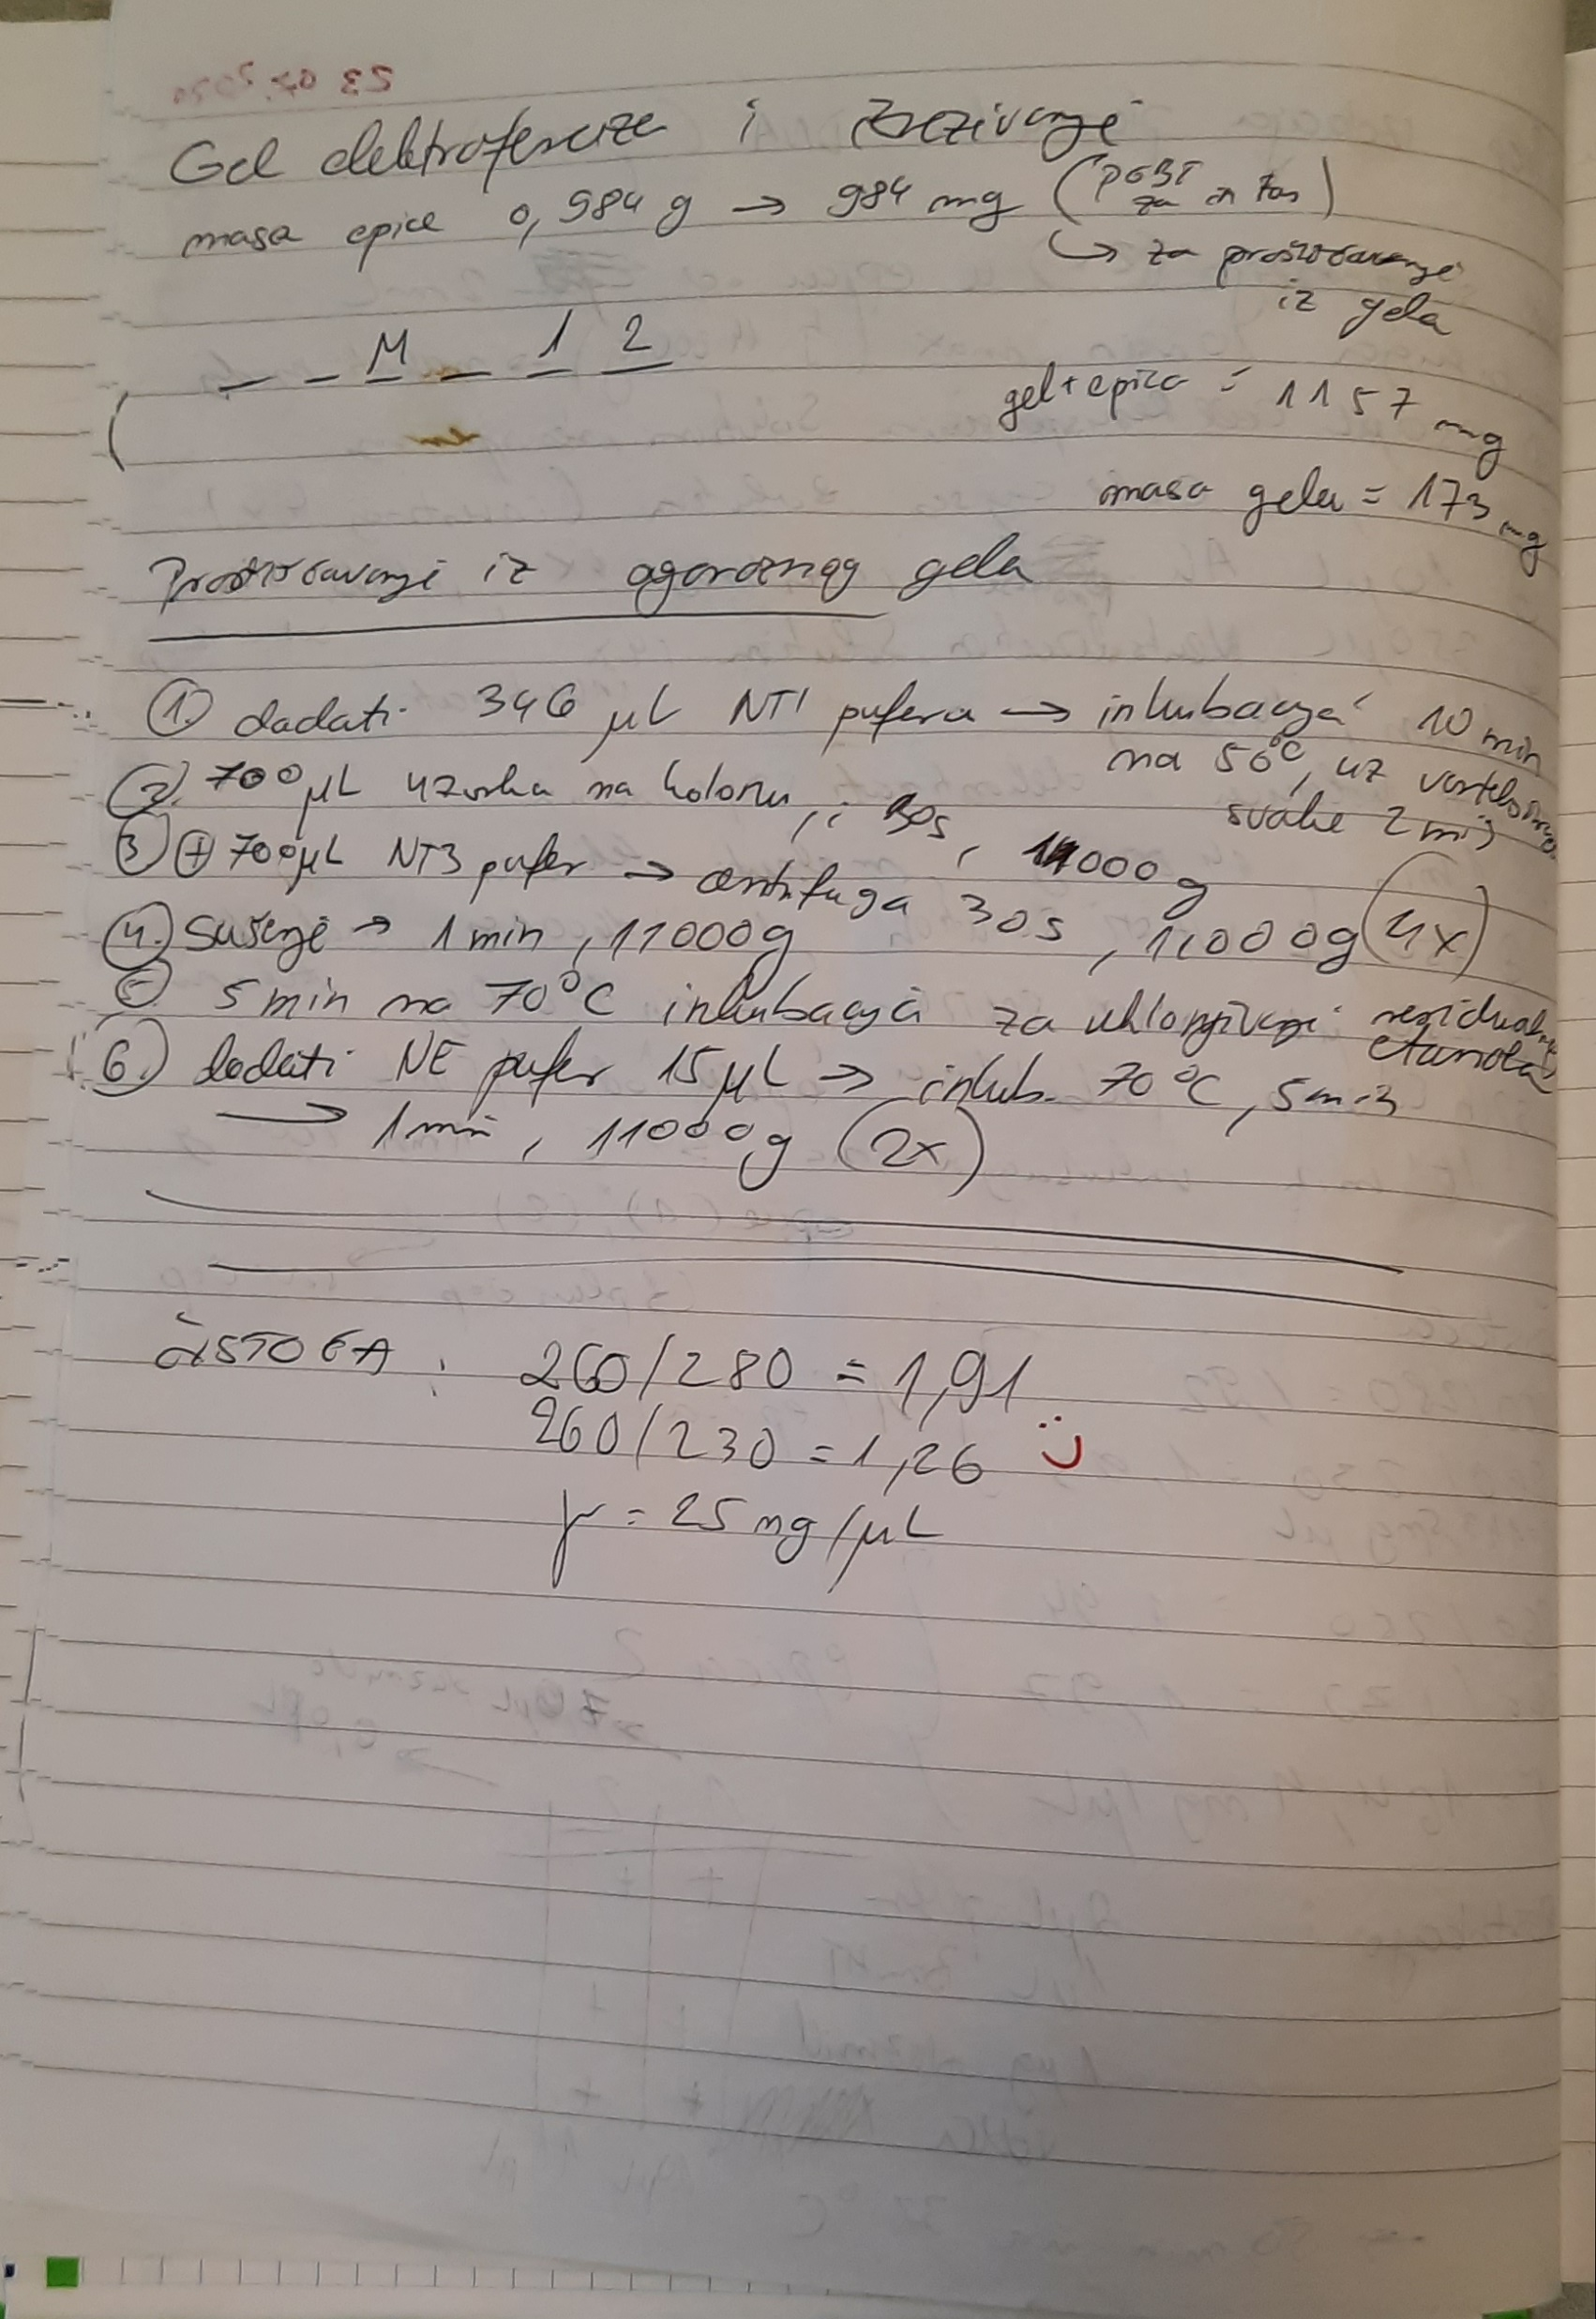 Gel elektroforeza i izrezivanje
masa epice 0,984 g → 984 mg (
↳ za pročišćavanje
iz gela
M 1 2
gel + epica = 1157 mg
masa gela = 173 mg
Pročišćavanje iz agaroznog gela
1. dodati 346 µL NTI pufera → inkubacija 10 min
na 50°C, uz vorteksiranje
svake 2 min
2. 700 µL uzorka na kolonu, 30s, 11000 g
3 + 700 µL NT3 pufer → centrifuga 30s, 11000g (4x)
4. Sušenje → 1 min, 11000g
5 5 min na 70°C inkubacija za uklanjivanje residualnog
etanola
6. dodati NE pufer 15 µL → inkub. 70°C, 5 min
→ 1 min, 11000g (2x)
ČISTOĆA : 260/280 = 1,91
260/230 = 1,26
γ = 25 ng/µL